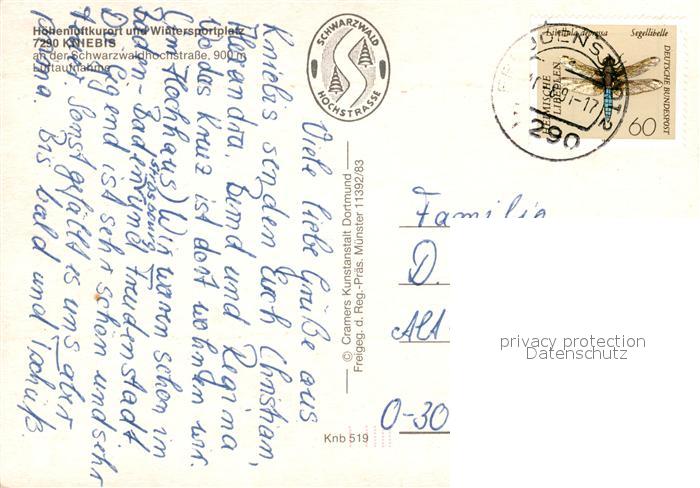 Höhenluftkurort und Wintersportplatz
7290 KNIEBIS
an der Schwarzwaldhochstraße, 900 m
Luftaufnahme
SCHWARZWALD
HOCHSTRASSE
Viele liebe Grüße aus
Kniebis senden Euch Christian,
Alexandra, Bernd und Regina
Wo das Kreuz ist dort wohnen wir.
(im Hochhaus) Wir waren schon in
Straßburg
Baden-Baden und Freudenstadt
Die Gegend ist sehr schön und sehr
Sonst gefällt es uns aber
prima. Bis bald und Tschüß.
© Cramers Kunstanstalt Dortmund
Freigeg. d. Reg.-Präs. Münster 11392/83
Knb 519
Libellula depressa Segellibelle
HEIMISCHE
LIBELLEN
DEUTSCHE BUNDESPOST
60
FREUDENSTADT 2
-17
290
Familie
D.
Alt
O-30
privacy protection
Datenschutz